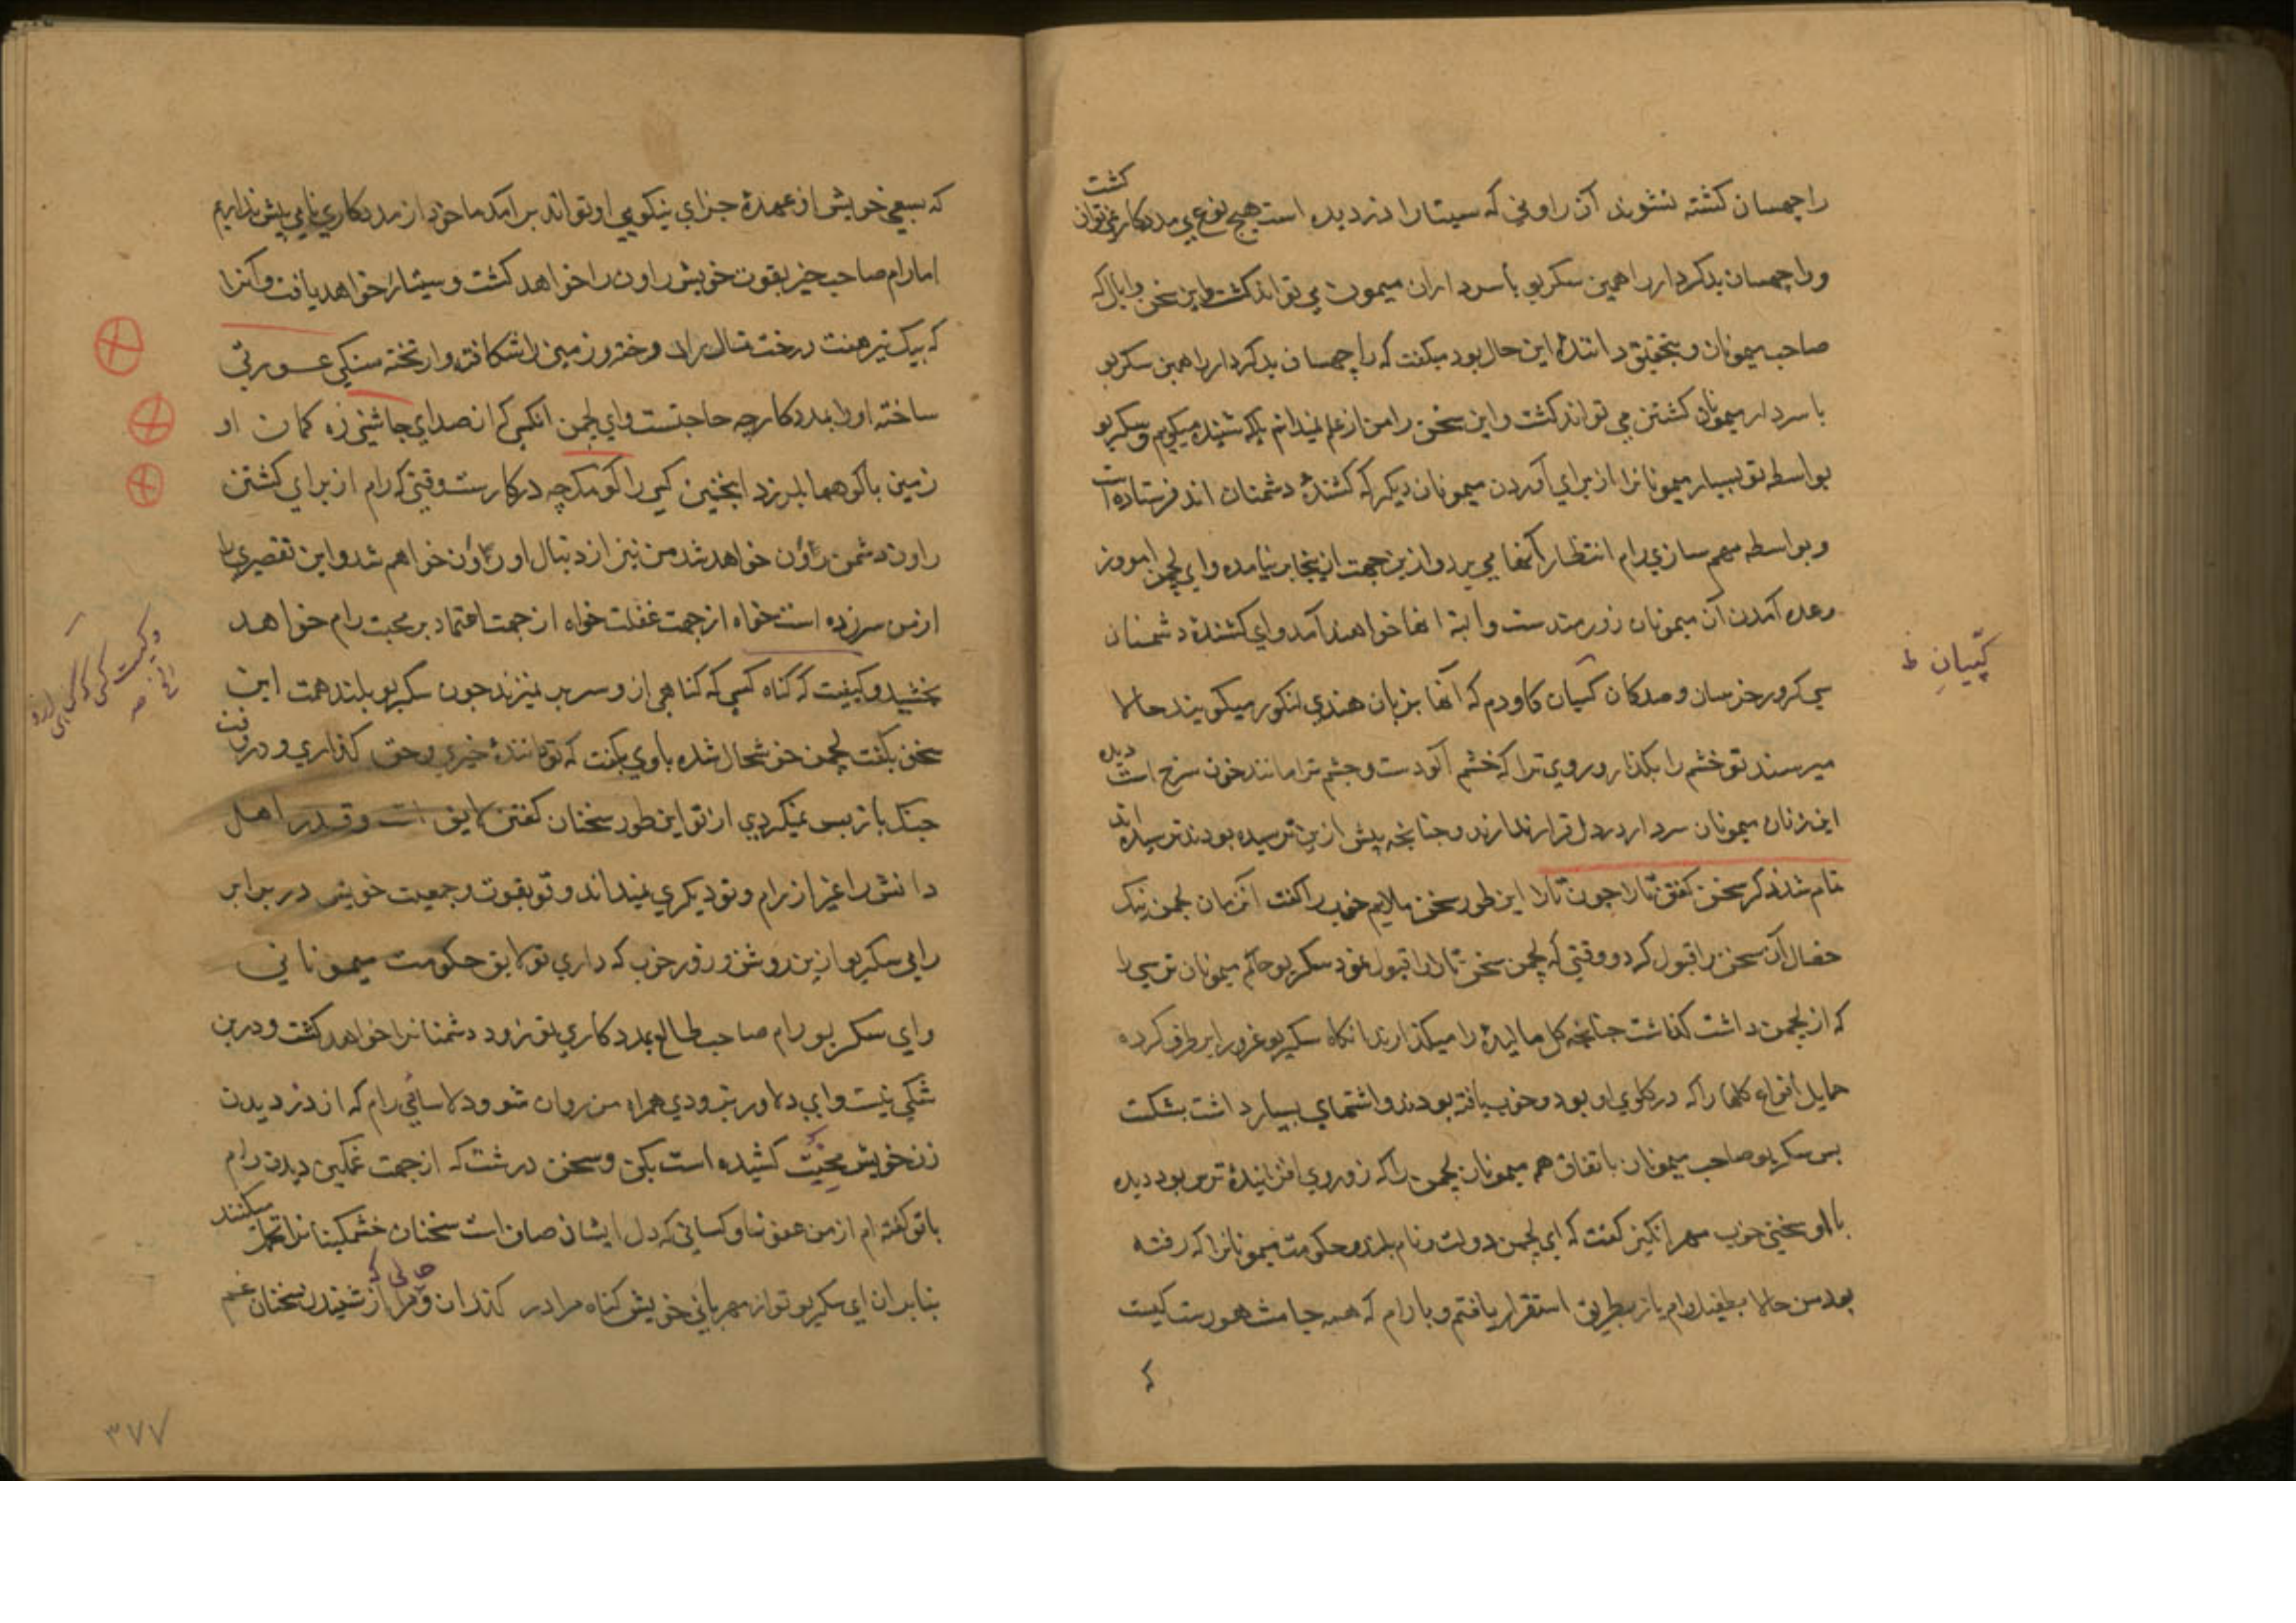 راچهسان کشته نشوند آن راونی که سیتا را دزدیده است هیچ نوع بی مددکار نمی‌توان کشت
وراچهسان بدکردار را همین سکریو با سرداران میمون می تواند کشت و این سخن را بال که
صاحب میمونان و بتحقیق دانندهٔ این حال بود میکفت که راچهسان بدکردار را همین سکریو
با سردار میمونان کشتن می تواند کشت و این سخن را من از علم نمیدانم بلکه شنیده میکویم و سکریو
بواسطه تو بسیار میمونانرا از برای آوردن میمونان دیکر که کشندهٔ دشمنان اند فرستاده است
و بواسطه مهم سازی رام انتظار آنها می برد و ازین جهت از اینجا بر نیامده و ای لچمن امروز
وعده آمدن آن میمونان زورمندست و البته انها خواهند آمد و ای کشندهٔ دشمنان
سی کرور خرسان و صد کان کپیان کاو دم که آنها بزبان هندی لنکور میکویند حالا
کپّیانِ ظ
میرسند تو خشم را بکذار و روی ترا که خشم آلودست و چشم ترا مانند خون سرخ است دیده
این زنان میمونان سردار در دل قرار ندارند و چنانچه پیش ازین ترسیده بودند ترسیده اند
تمام شدن ذکر سخن کفتن تارا چون تارا این طور سخن ملایم خوب را کفت آنزمان لچمن نیک
خصال آن سخن را قبول کرد و وقتی که لچمن سخن تارا را قبول نمود سکریو حاکم میمونان ترسی را
که از لچمن داشت کذاشت چنانچه کل مالیده را میکذارند انکاه سکریو غرور را بر طرف کرده
حمایل انواع کلها را که در کلوی او بود و خوب بافته بودند و اشتهای بسیار داشت بشکست
پس سکریو صاحب میمونان باتفاق هم میمونان لچمن را که زوروی افزانیدهٔ ترس بود دیده
با او سخنی خوب مهر انکیز کفت که ای لچمن دولت و نام بلند و حکومت میمونانرا که رفته
بود من حالا بطفیل رام باز بطریق استقرار یافتم و با رام که همه جا مشهورست کیست
که
که بسعی خویش از عهدهٔ جزای نیکویی او تواند بر آمد ما خود از مددکاری نامی بیش نداریم
اما رام صاحب خیر بقوت خویش راون را خواهد کشت و سیتا را خواهد یافت و آنرا
که بیک تیر هفت درخت تال را و زمین را شکافته و از تخته سنکی عورتی
ساخته او را بمددکار چه حاجتست و ای لچمن انکسی که از صدای چاشنی زه کمان او
زمین باکوهها بلرزد اینچنین کسی را کومک چه در کارست وقتی که رام از برای کشتن
راون دشمن روان خواهد شد من نیز از دنبال او روان خواهم شد و این تقصیری را
از من سر زده است خواه از جهت غفلت خواه از جهت اعتماد بر محبت رام خواهد
بخشید و کیفیت که کناه کسی که کناهی از و سر بر نمیزند چون سکریو بلند همت این
وکیست کسی که
سخن بکفت لچمن خوشحال شده باوی بکفت که تو دانندهٔ خیری و حق کذاری و در وقت
جنک باز پس نمیکردی از تو این طور سخنان کفتن لایق است و قدر اهل
دانش را غیر از رام و تو دیکری نمیداند و تو بقوت و جمعیت خویش در برابر
رامی سکریو ازین روش و زور خوب که داری تو لایق حکومت میمونانی
و ای سکریو رام صاحب طالع بمددکاری تو زود دشمنانرا خواهد کشت و درین
شکی نیست و ای دلاور بزودی همراه من روان شو و دلاسائی رام که از دزدیدن
زن خویش محنت کشیده است بکن و سخن درشت که از جهت غمکین دیدن رام
با تو کفته ام از من عفو نما و کسانی که دل ایشان صاف است سخنان خشمکینانرا تحمل میکنند
بنابران ای سکریو تو از مهربانی خویش کناه مرا در کذران و مرا از شنیدن سخنان غم
۳۷۷